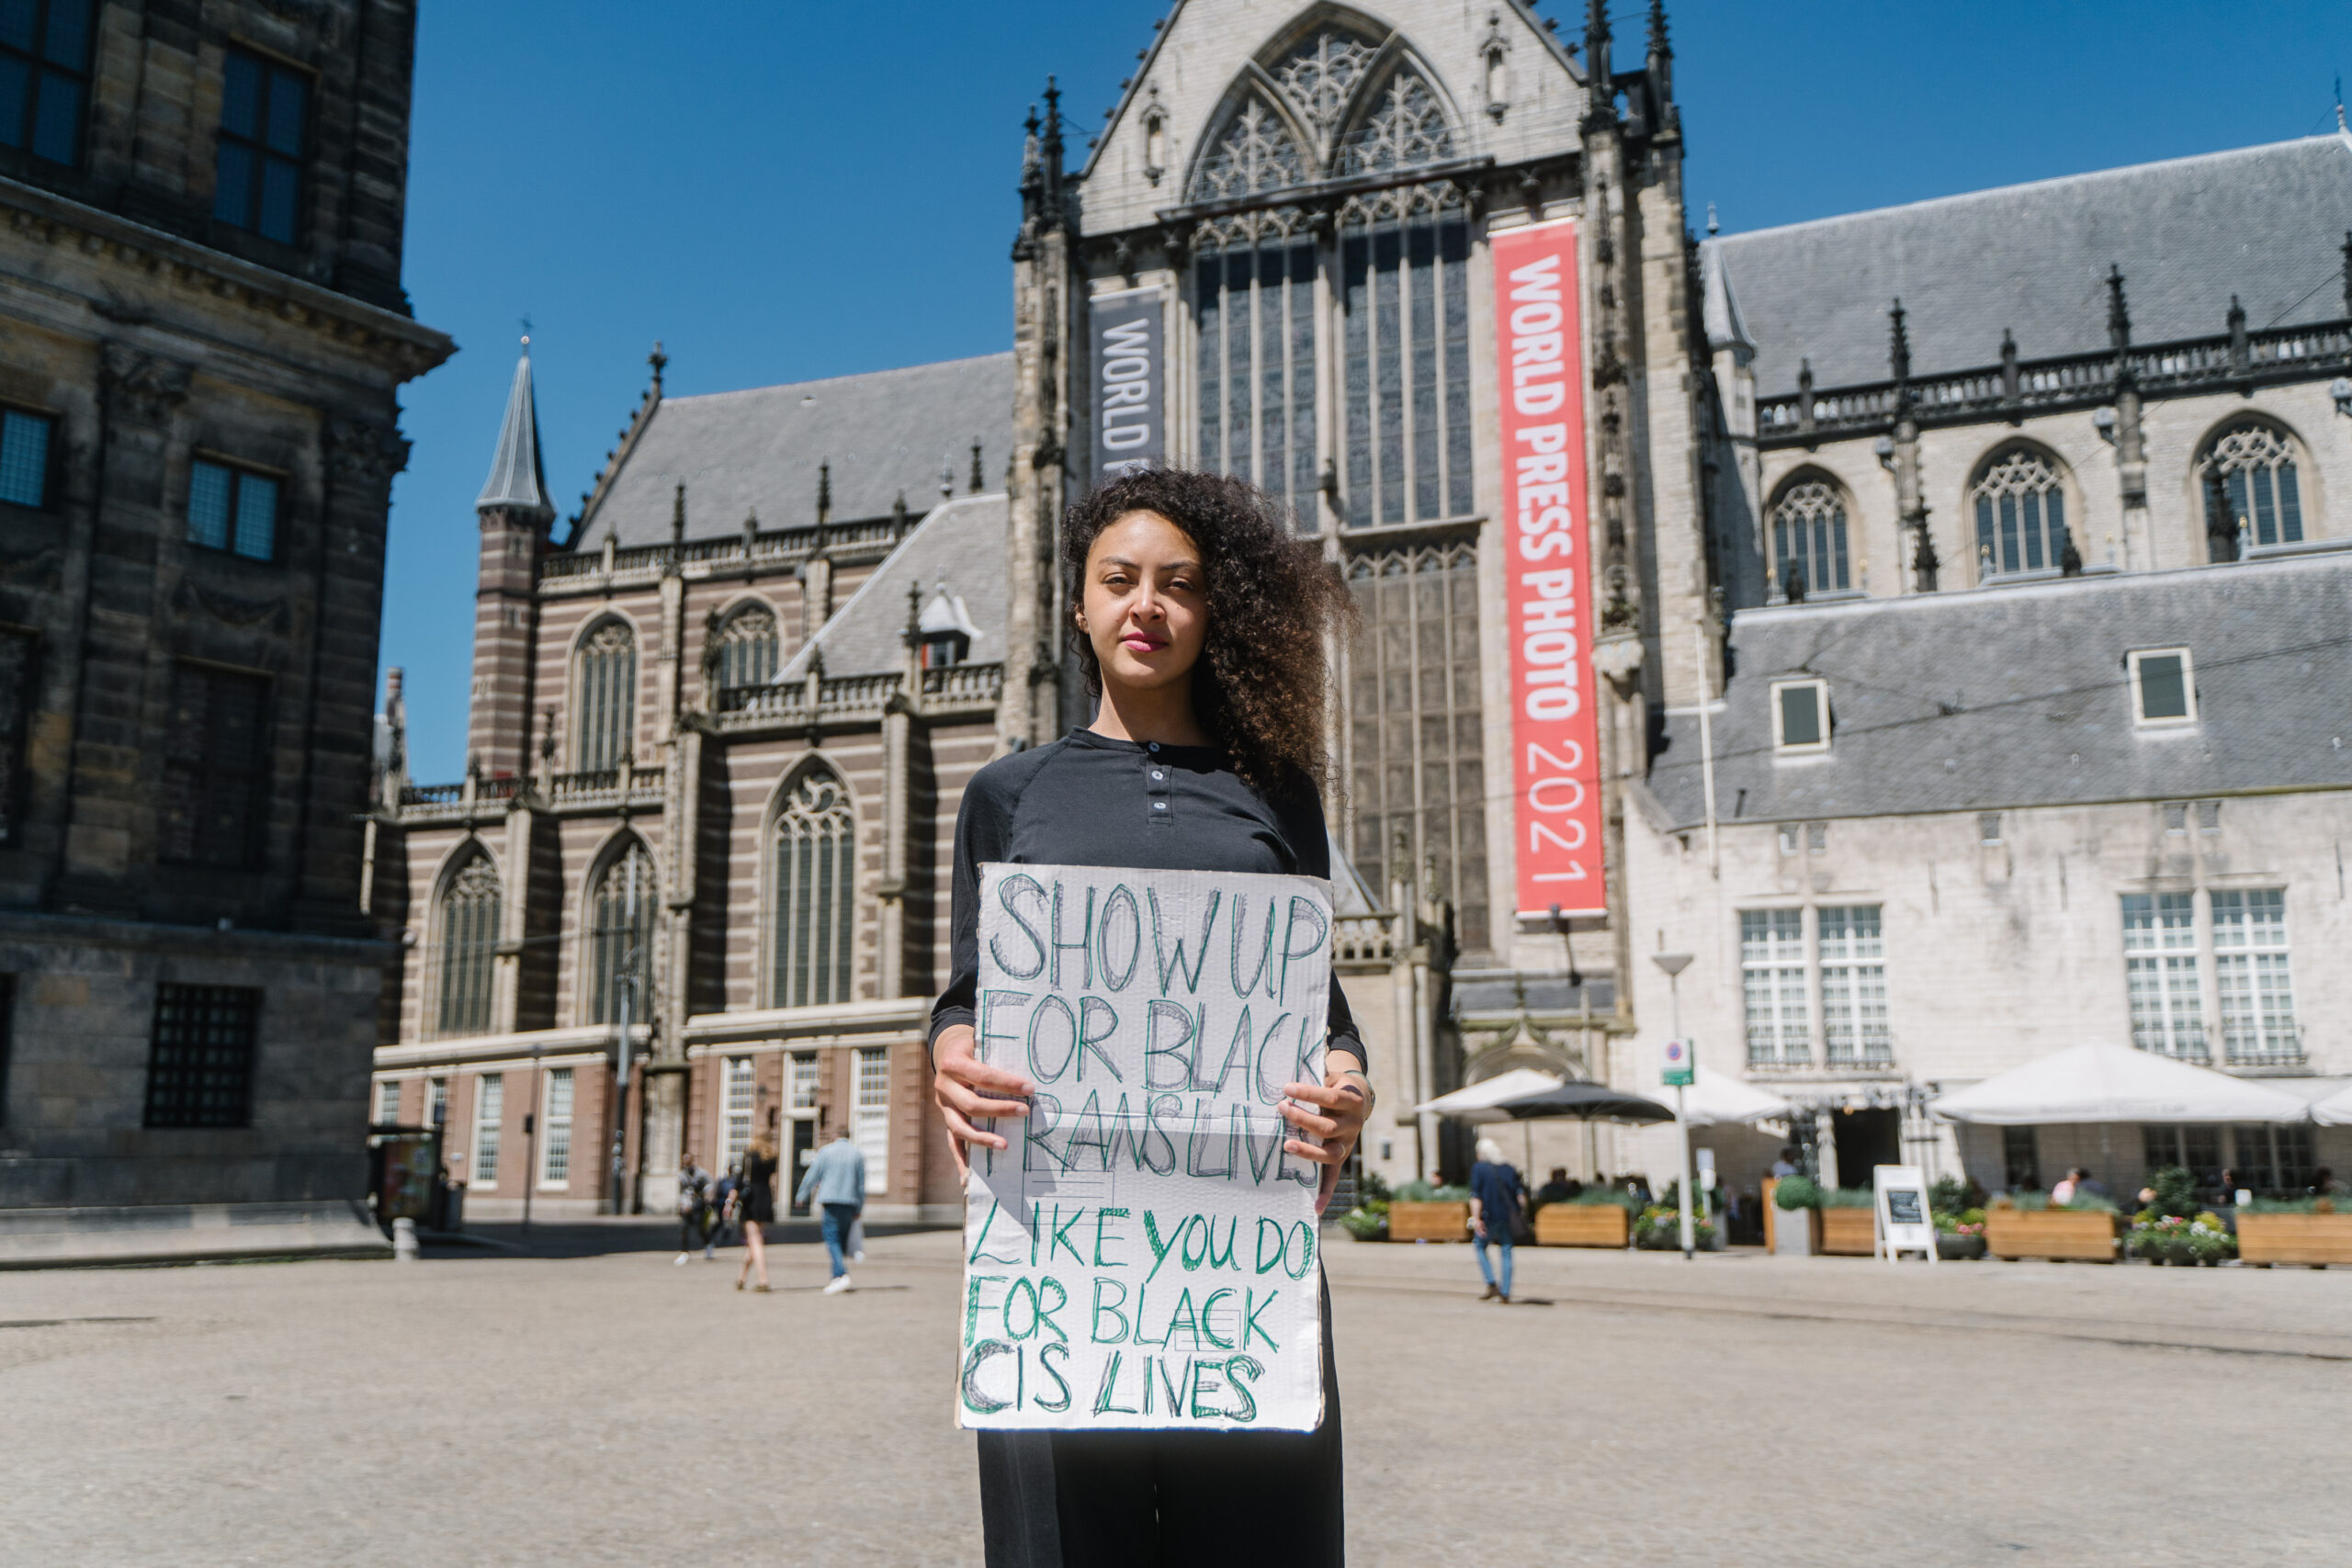 WORLD
WORLD PRESS PHOTO 2021
SHOW UP
FOR BLACK
TRANS LIVES
LIKE YOU DO
FOR BLACK
CIS LIVES